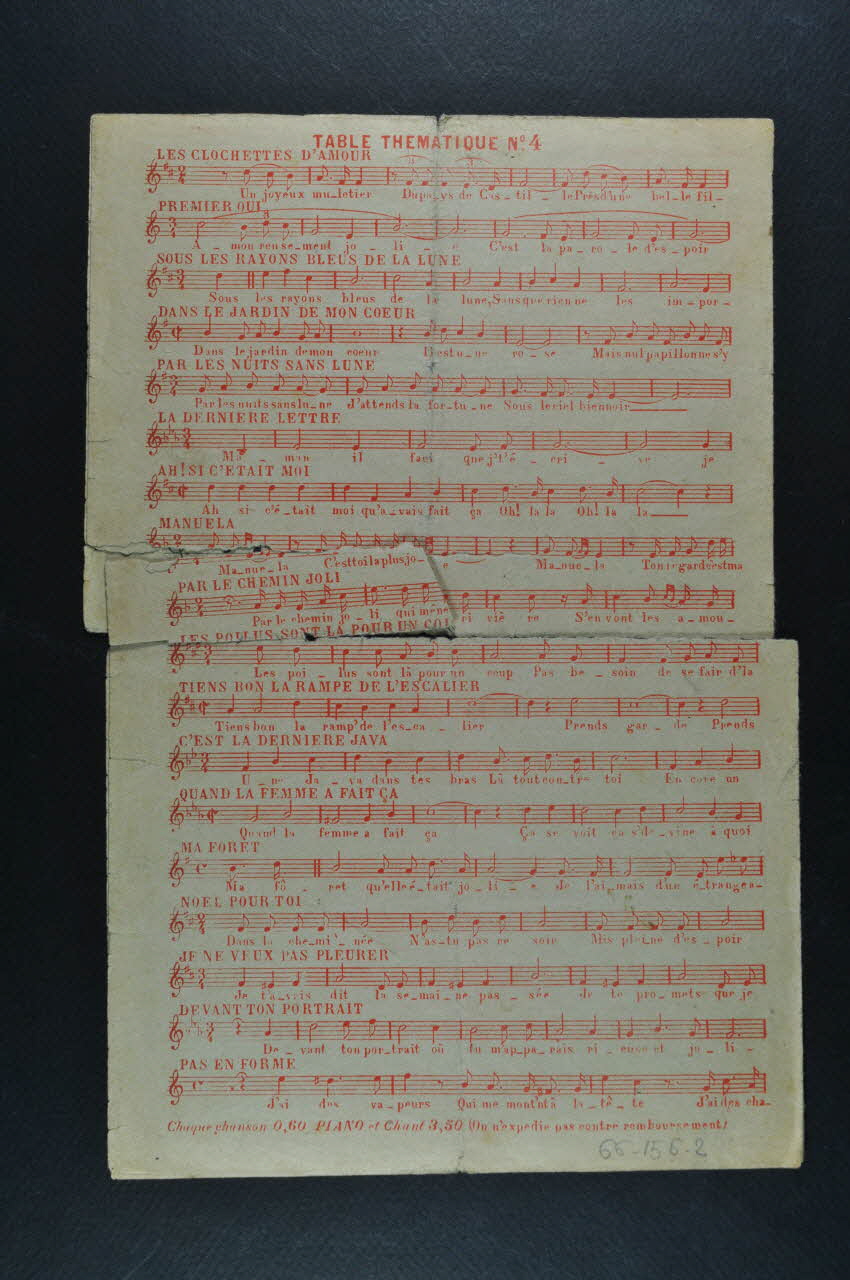 TABLE THEMATIQUE Nº 4
LES CLOCHETTES D'AMOUR
Un joyeux mu-letier Du pays de Cas-til-le Près d'une bel-le fil-
PREMIER OUI
A-mou reu se-ment jo-li-e C'est la pa-ro-le d'es-poir
SOUS LES RAYONS BLEUS DE LA LUNE
Sous les rayons bleus de la lune, Sans que rien ne les im-por-
DANS LE JARDIN DE MON COEUR
Dans le jardin de mon coeur Il est u-ne ro-se Mais nul papillon ne s'y
PAR LES NUITS SANS LUNE
Par les nuits sans lu-ne J'attends la for-tu-ne Sous le ciel bien noir
LA DERNIERE LETTRE
Ma-man il faut que j't'é-cri-ve je
AH! SI C'ETAIT MOI
Ah si c'é-tait moi qu'a-vais fait ça Oh! la la Oh! la la
MANUELA
Ma-nue-la C'est toi la plus jo- e Ma-nue-la Ton regard s'est ma
PAR LE CHEMIN JOLI
Par le chemin jo-li qui mène ri viè re S'en vont les a-mou-
LES POILUS SONT LA POUR UN COU
Les poi-lus sont là pour un coup Pas be-soin de se fair d'la
TIENS BON LA RAMPE DE L'ESCALIER
Tiens bon la ramp' de l'es-ca-lier Prends gar-de Prends
C'EST LA DERNIERE JAVA
U-ne Ja-va dans tes bras Là tout con-tre toi En core un
QUAND LA FEMME A FAIT ÇA
Quand la femme a fait ça Ça se voit ça s'de-vine à quoi
MA FORET
Ma fô-ret qu'elle é-tait jo-li-e Je l'ai mais d'un é-trange a-
NOEL POUR TOI
Dans la che-mi-née N'as-tu pas ce soir Mis plei-ne d'es-poir
JE NE VEUX PAS PLEURER
Je t'a-vais dit la se-mai-ne pas-sée Je te pro-mets que je
DEVANT TON PORTRAIT
De-vant ton por-trait où tu m'ap-pa-rais ri-euse et jo-li-
PAS EN FORME
J'ai des va-peurs Qui me mont'nt à la tê-te J'ai des cha-
Chaque chanson 0,60 PIANO et Chant 3,50 (On n'expédie pas contre remboursement)
66-156-2